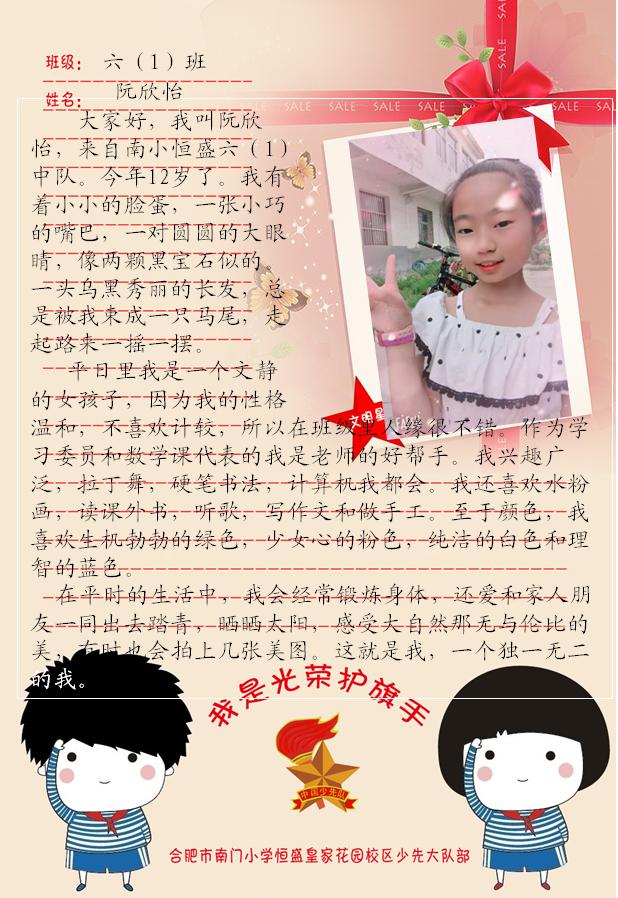 班级：六（1）班
姓名：阮欣怡
SALE SALE SALE SALE SALE SALE
SALE
SALE
大家好，我叫阮欣
怡，来自南小恒盛六（1）
中队。今年12岁了。我有
着小小的脸蛋，一张小巧
的嘴巴，一对圆圆的大眼
睛，像两颗黑宝石似的。
一头乌黑秀丽的长发，总
是被我束成一只马尾，走
起路来一摇一摆。
平日里我是一个文静
的女孩子，因为我的性格
文明星
温和，不喜欢计较，所以在班级里人缘很不错。作为学
习委员和数学课代表的我是老师的好帮手。我兴趣广
泛，拉丁舞，硬笔书法，计算机我都会。我还喜欢水粉
画，读课外书，听歌，写作文和做手工。至于颜色，我
喜欢生机勃勃的绿色，少女心的粉色，纯洁的白色和理
智的蓝色。
在平时的生活中，我会经常锻炼身体，还爱和家人朋
友一同出去踏青，晒晒太阳，感受大自然那无与伦比的
美，有时也会拍上几张美图。这就是我，一个独一无二
的我。
我是光荣护旗手
中国少先队
合肥市南门小学恒盛皇家花园校区少先大队部